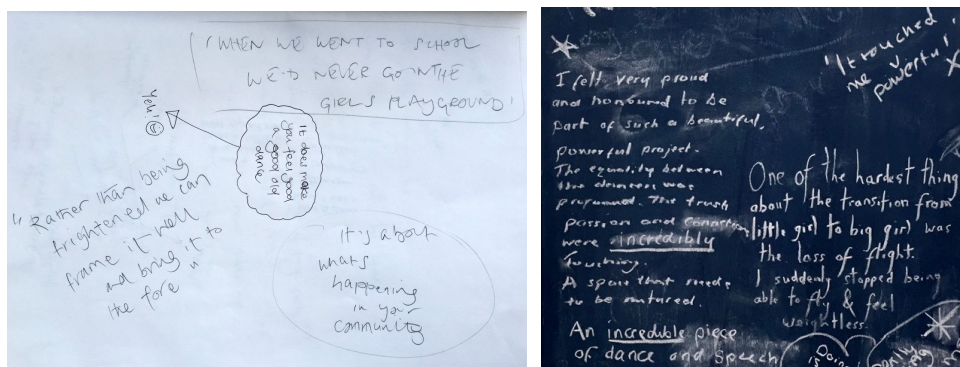 'WHEN WE WENT TO SCHOOL
WE'D NEVER GO IN THE
GIRLS PLAYGROUND'
Yeh!
It does make
you feel good
a good old
dance
"Rather than being
frightened we can
frame it well
and bring it to
the fore"
It's about
whats
happening
in your
community
I felt very proud
and honoured to be
part of such a beautiful,
powerful project.
The equality between
the dancers was
profound. The trust
passion and connection
were incredibly
touching.
A space that needs
to be nurtured.
An incredible piece
of dance and speech
"It touched
me v
powerful
One of the hardest thing
about the transition from
little girl to big girl was
the loss of flight.
I suddenly stopped being
able to fly & feel
weightless.
Doing
is